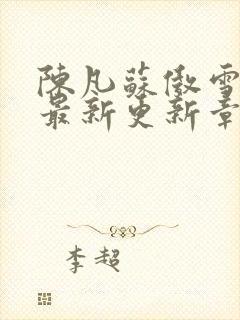 陳凡蘇傲雪
最新更新章
李超